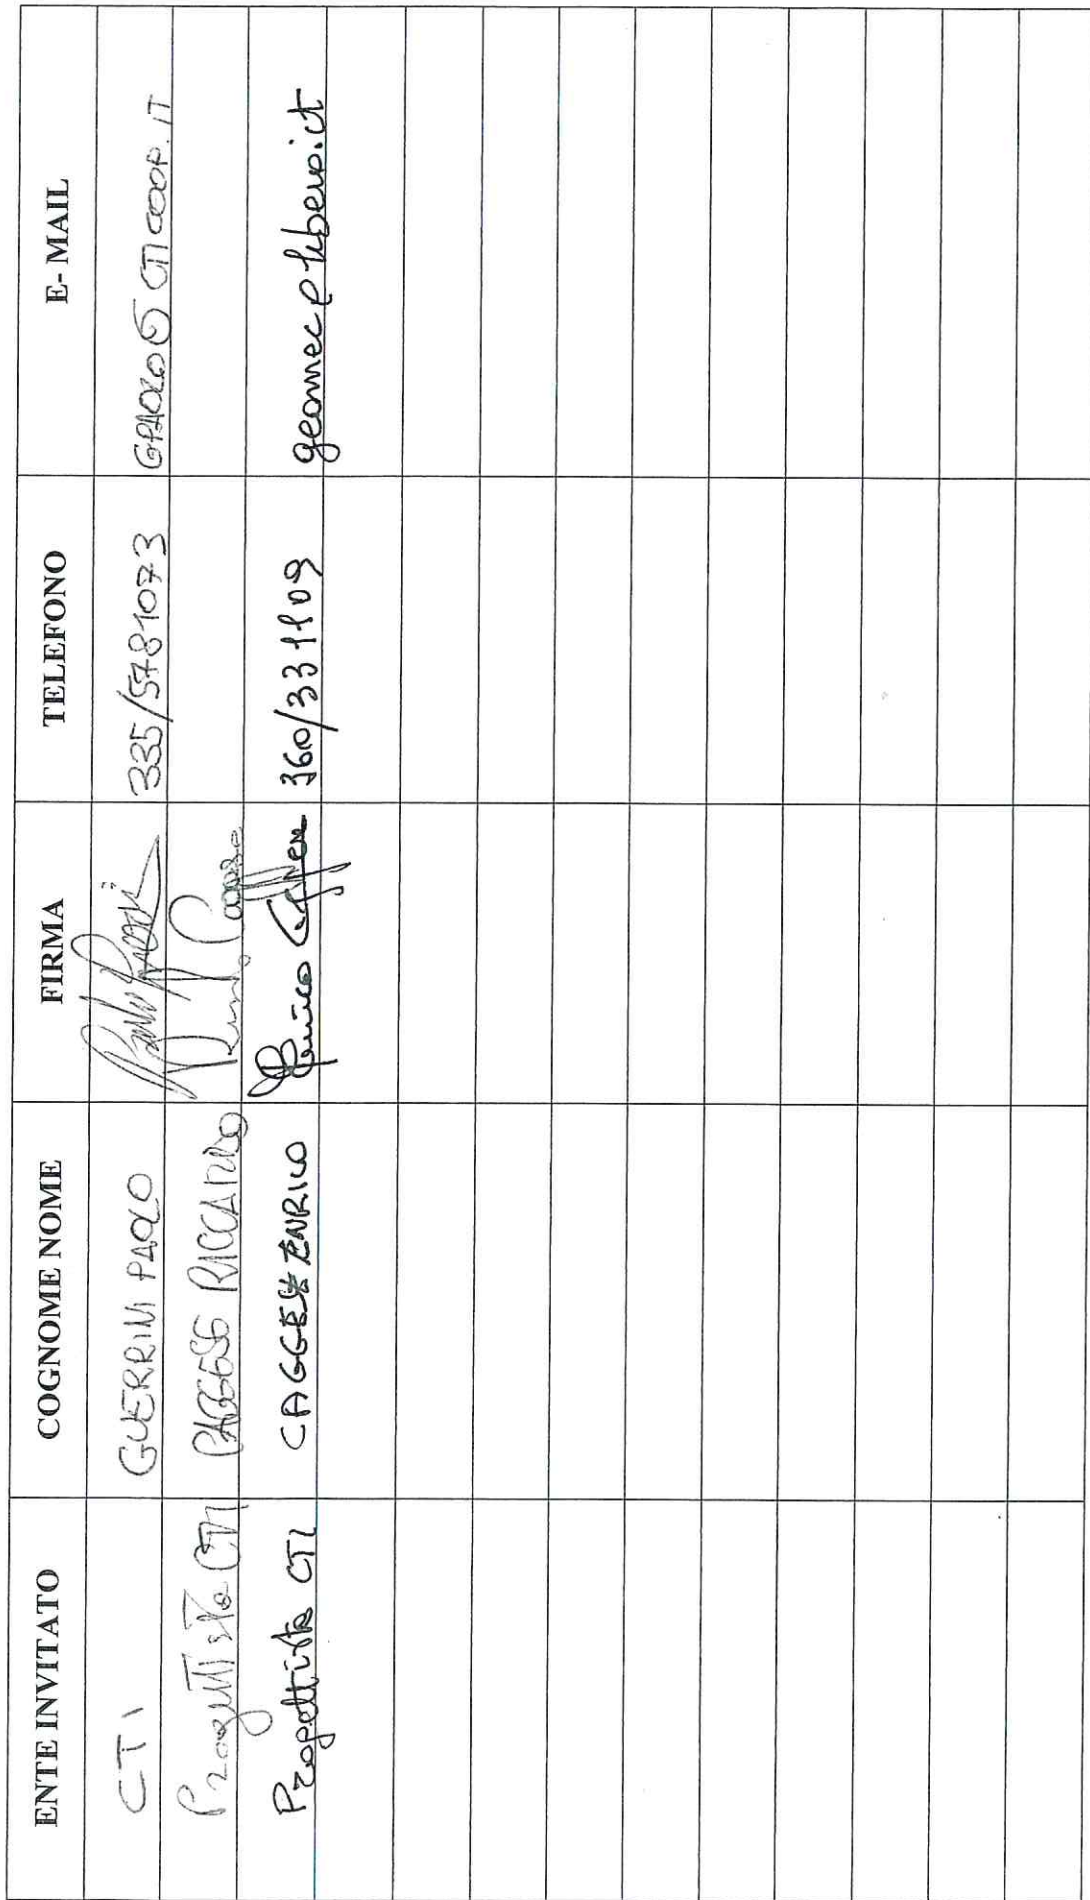 ENTE INVITATO COGNOME NOME FIRMA TELEFONO E- MAIL
CTI GUERRINI PAOLO 335/5781073 GPAOLO@CTICOOP.IT
Progettista CTI RICCARDO
Progettista CTI CAGGESE ENRICO Enrico Caggese 360/331109 geomec@libero.it